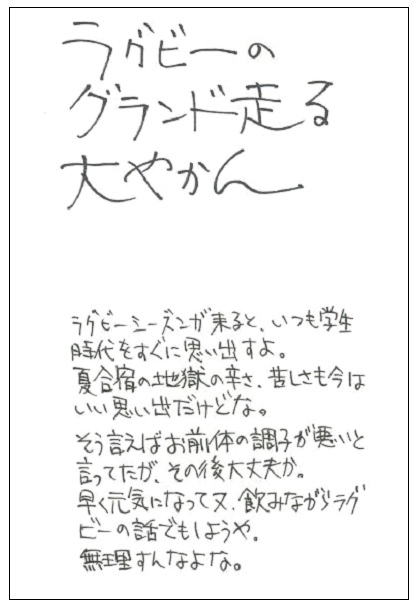 ラグビーの
グランド走る
大やかん
ラグビーシーズンが来ると、いつも学生
時代をすぐに思い出すよ。
夏合宿の地獄の辛さ、苦しさも今は
いい思い出だけどな。
そう言えばお前体の調子が悪いと
言ってたが、その後大丈夫か。
早く元気になって又、飲みながらラグ
ビーの話でもしようや。
無理すんなよな。